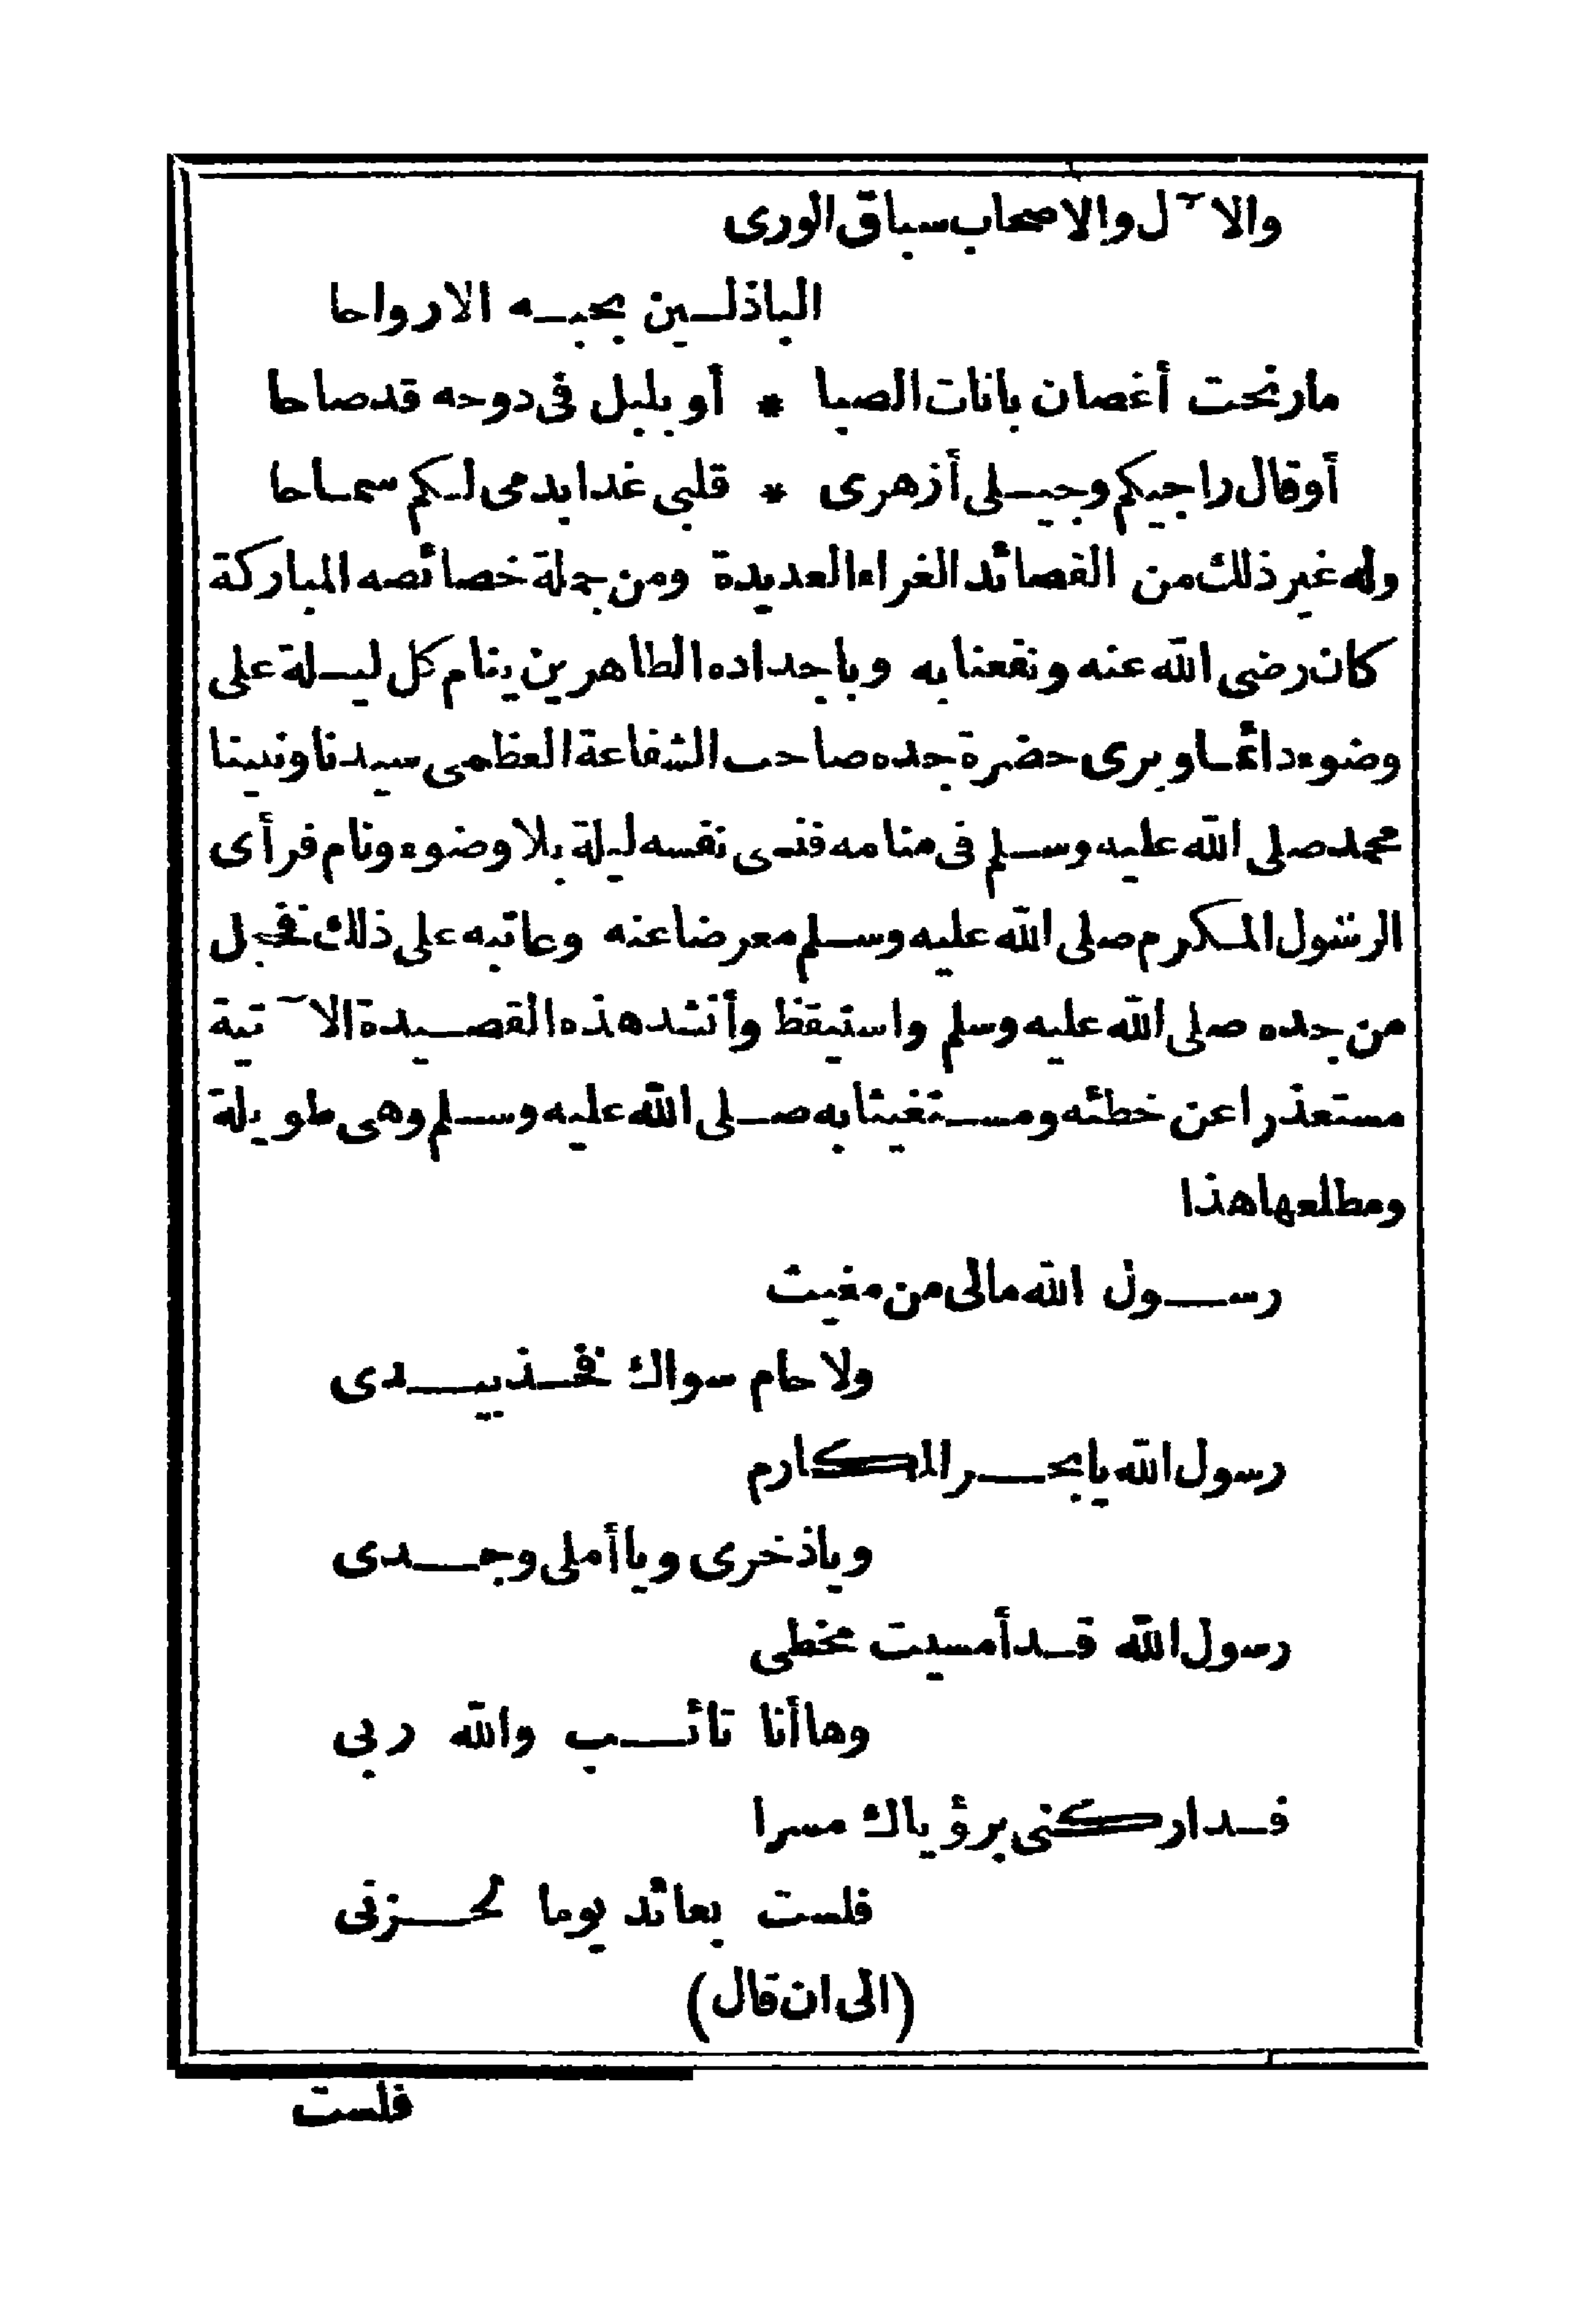 والآل والاصحاب سباق الورى
الباذلين بحبه الارواحا
مارنحت أغصان بانات الصبا * أو بلبل فى دوحه قد صاحا
أوقال راجيكم وجيلى أزهرى * قلبى غدا يدمى لكم سماحا
وله غير ذلك من القصائد الغراء العديدة ومن جملة خصائصه المباركة
كان رضى الله عنه ونفعنا به وباجداده الطاهرين ينام كل ليلة على
وضوء دائما ويرى حضرة جده صاحب الشفاعة العظمى سيدنا ونبينا
محمد صلى الله عليه وسلم فى منامه فنسى نفسه ليلة بلا وضوء ونام فرأى
الرسول المكرم صلى الله عليه وسلم معرضا عنه وعاتبه على ذلك فخجل
من جده صلى الله عليه وسلم واستيقظ وأنشد هذه القصيدة الآتية
مستعذرا عن خطئه ومستغيثا به صلى الله عليه وسلم وهى طويلة
ومطلعها هذا
رسول الله مالى من مغيث
ولا حام سواك فخذ بيدى
رسول الله يا بحر المكارم
وياذخرى ويا أملى وجدى
رسول الله قد أمسيت مخطى
وها أنا تائب والله ربى
فداركنى برؤياك مسرا
فلست بعائد يوما لحزنى
(الى ان قال)
فلست